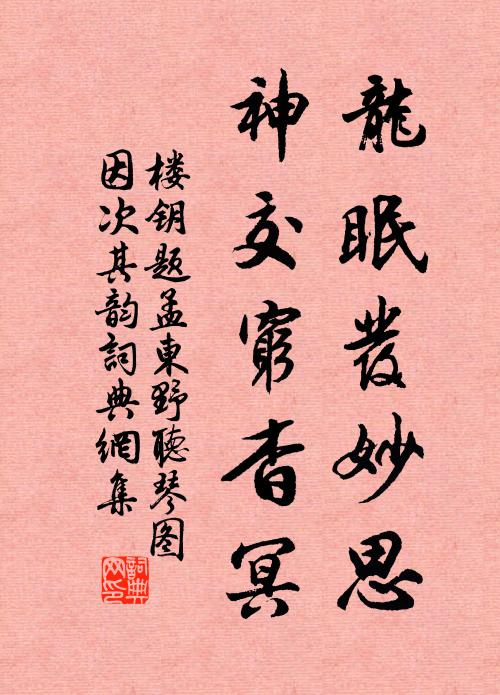 龍眠發妙思
神交窮杳冥
楼钥题孟東野聽琴图
因次其韵詞典網集
詞典
网印